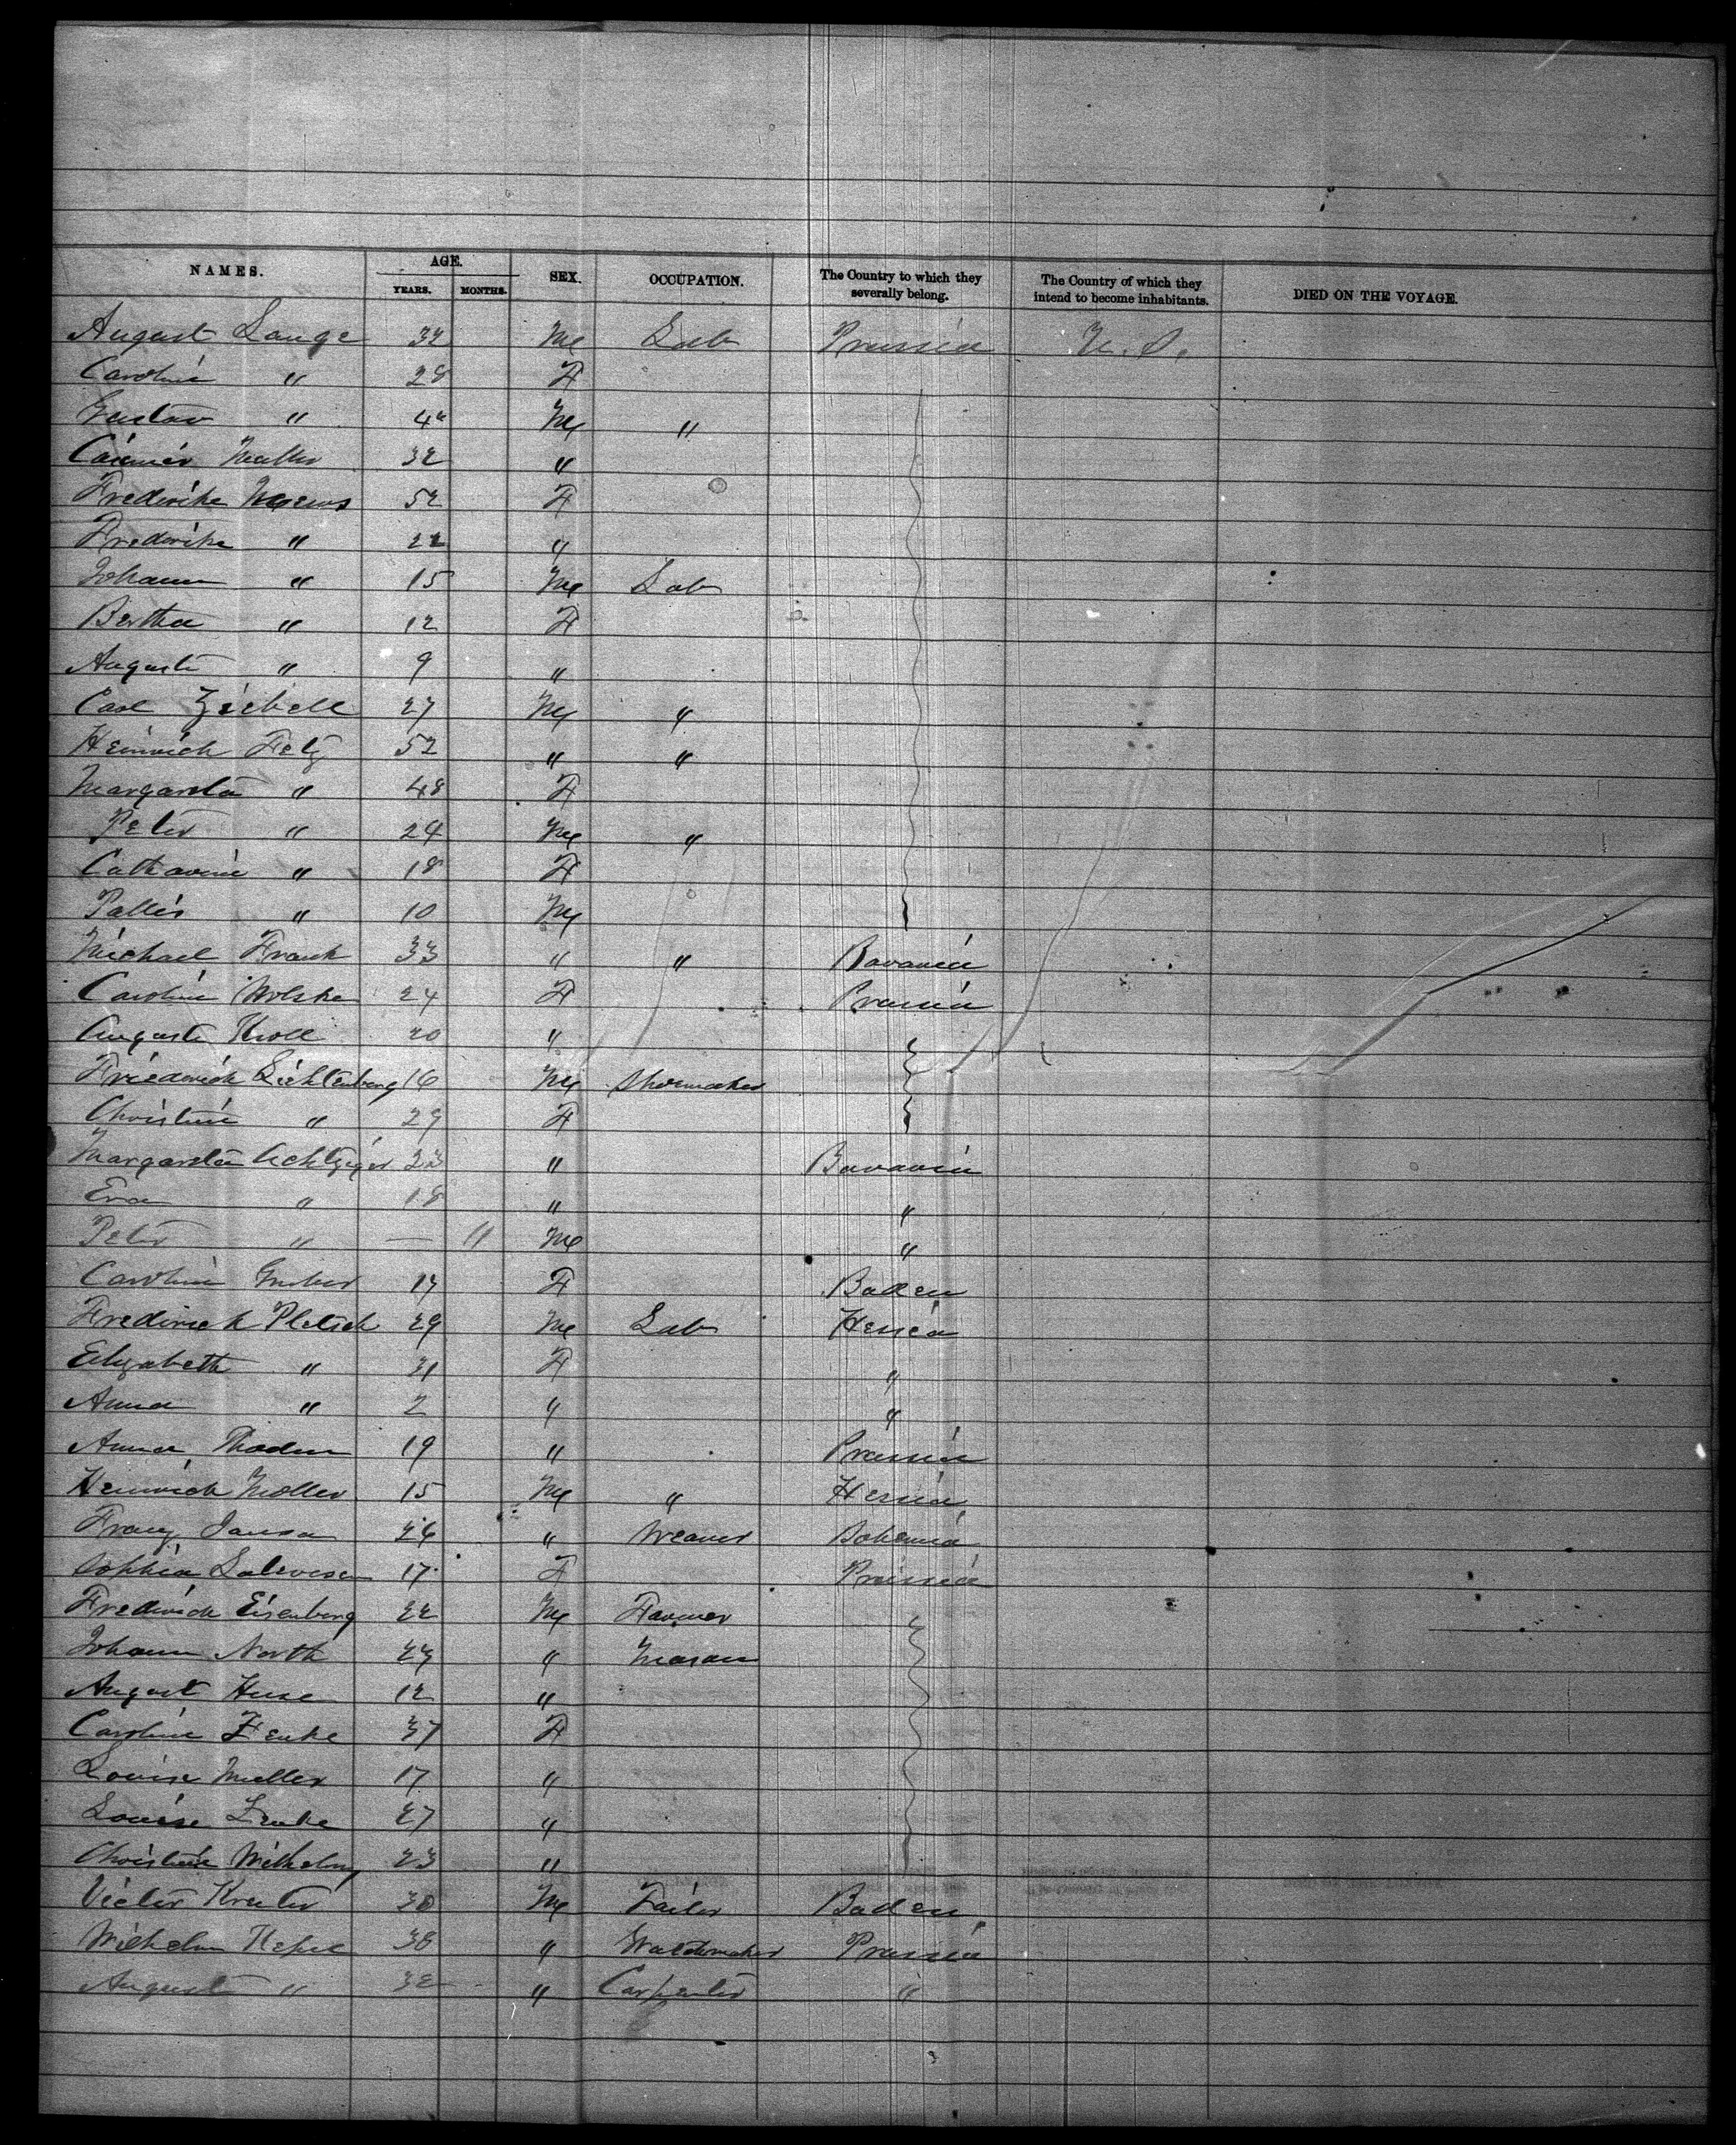 NAMES. AGE. YEARS. MONTHS. SEX. OCCUPATION. The Country to which they severally belong. The Country of which they intend to become inhabitants. DIED ON THE VOYAGE.
August Lange 32 M Lab Prussia U.S.
Caroline " 28 F
Gustav " 4 M "
Casimir Muller 32 "
Frederike 52 F
Frederike " 22 "
Johann " 15 M Lab
Bertha " 12 F
Auguste " 9 "
Carl Ziebell 27 M "
Heinrich Feltz 52 " "
Margaretta " 48 F
Peter " 24 M "
Catharine " 18 F
" 10 M
Michael Frank 33 " " Bavaria
Caroline Wolske 24 F Prussia
Auguste Kroll 20 "
Friederich Lichtenberg 16 M Shoemaker
Christine " 29 F
Margaretta 23 " Bavaria
Eva " 18 " "
Peter " — 11 M "
Caroline Gruber 17 F Baden
Frederick Pletsch 29 M Lab Hessia
Elizabeth " 31 F "
Anna " 2 " "
Anna Thaden 19 " Prussia
Heinrich Moller 15 M " Hessia
Franz Jansa 26 " Weaver Bohemia
Sophia 17 F Prussia
Frederick Eisenberg 22 M Farmer
Johann North 27 " Mason
August Huse 12 "
Caroline Zenke 37 F
Louise Muller 17 "
Louise Zenke 27 "
Christine Wilhelmy 23 "
Victor Kreuter 30 M Tailor Baden
Wilhelm 38 " Watchmaker Prussia
August " 32 " Carpenter "